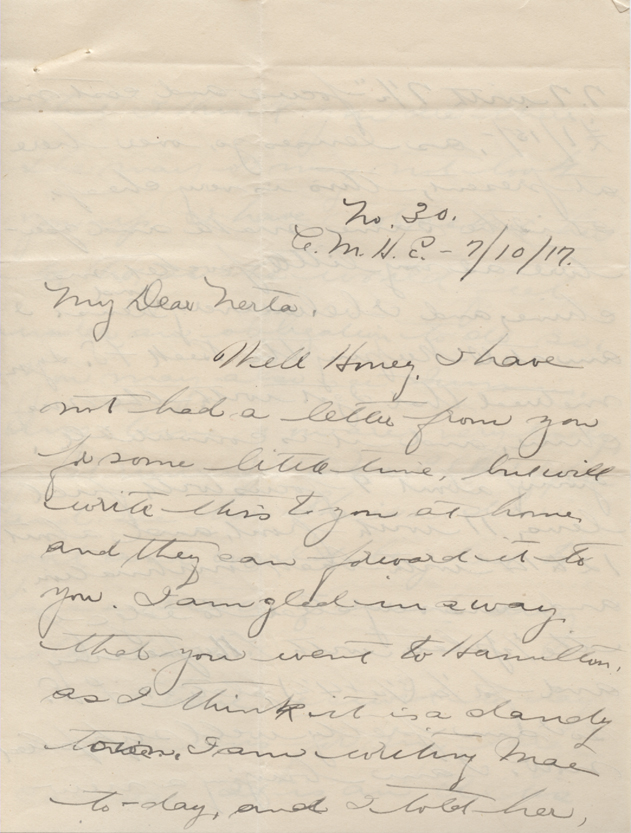 No. 30.
C. M. H. E. - 7/10/17.
My Dear Nerta.
Well Honey, I have
not had a letter from you
for some little time, but will
write this to you at home,
and they can forward it to
you. I am glad in a way
that you went to Hamilton,
as I think it is a dandy
town. I am writing Mae
to-day, and I told her,